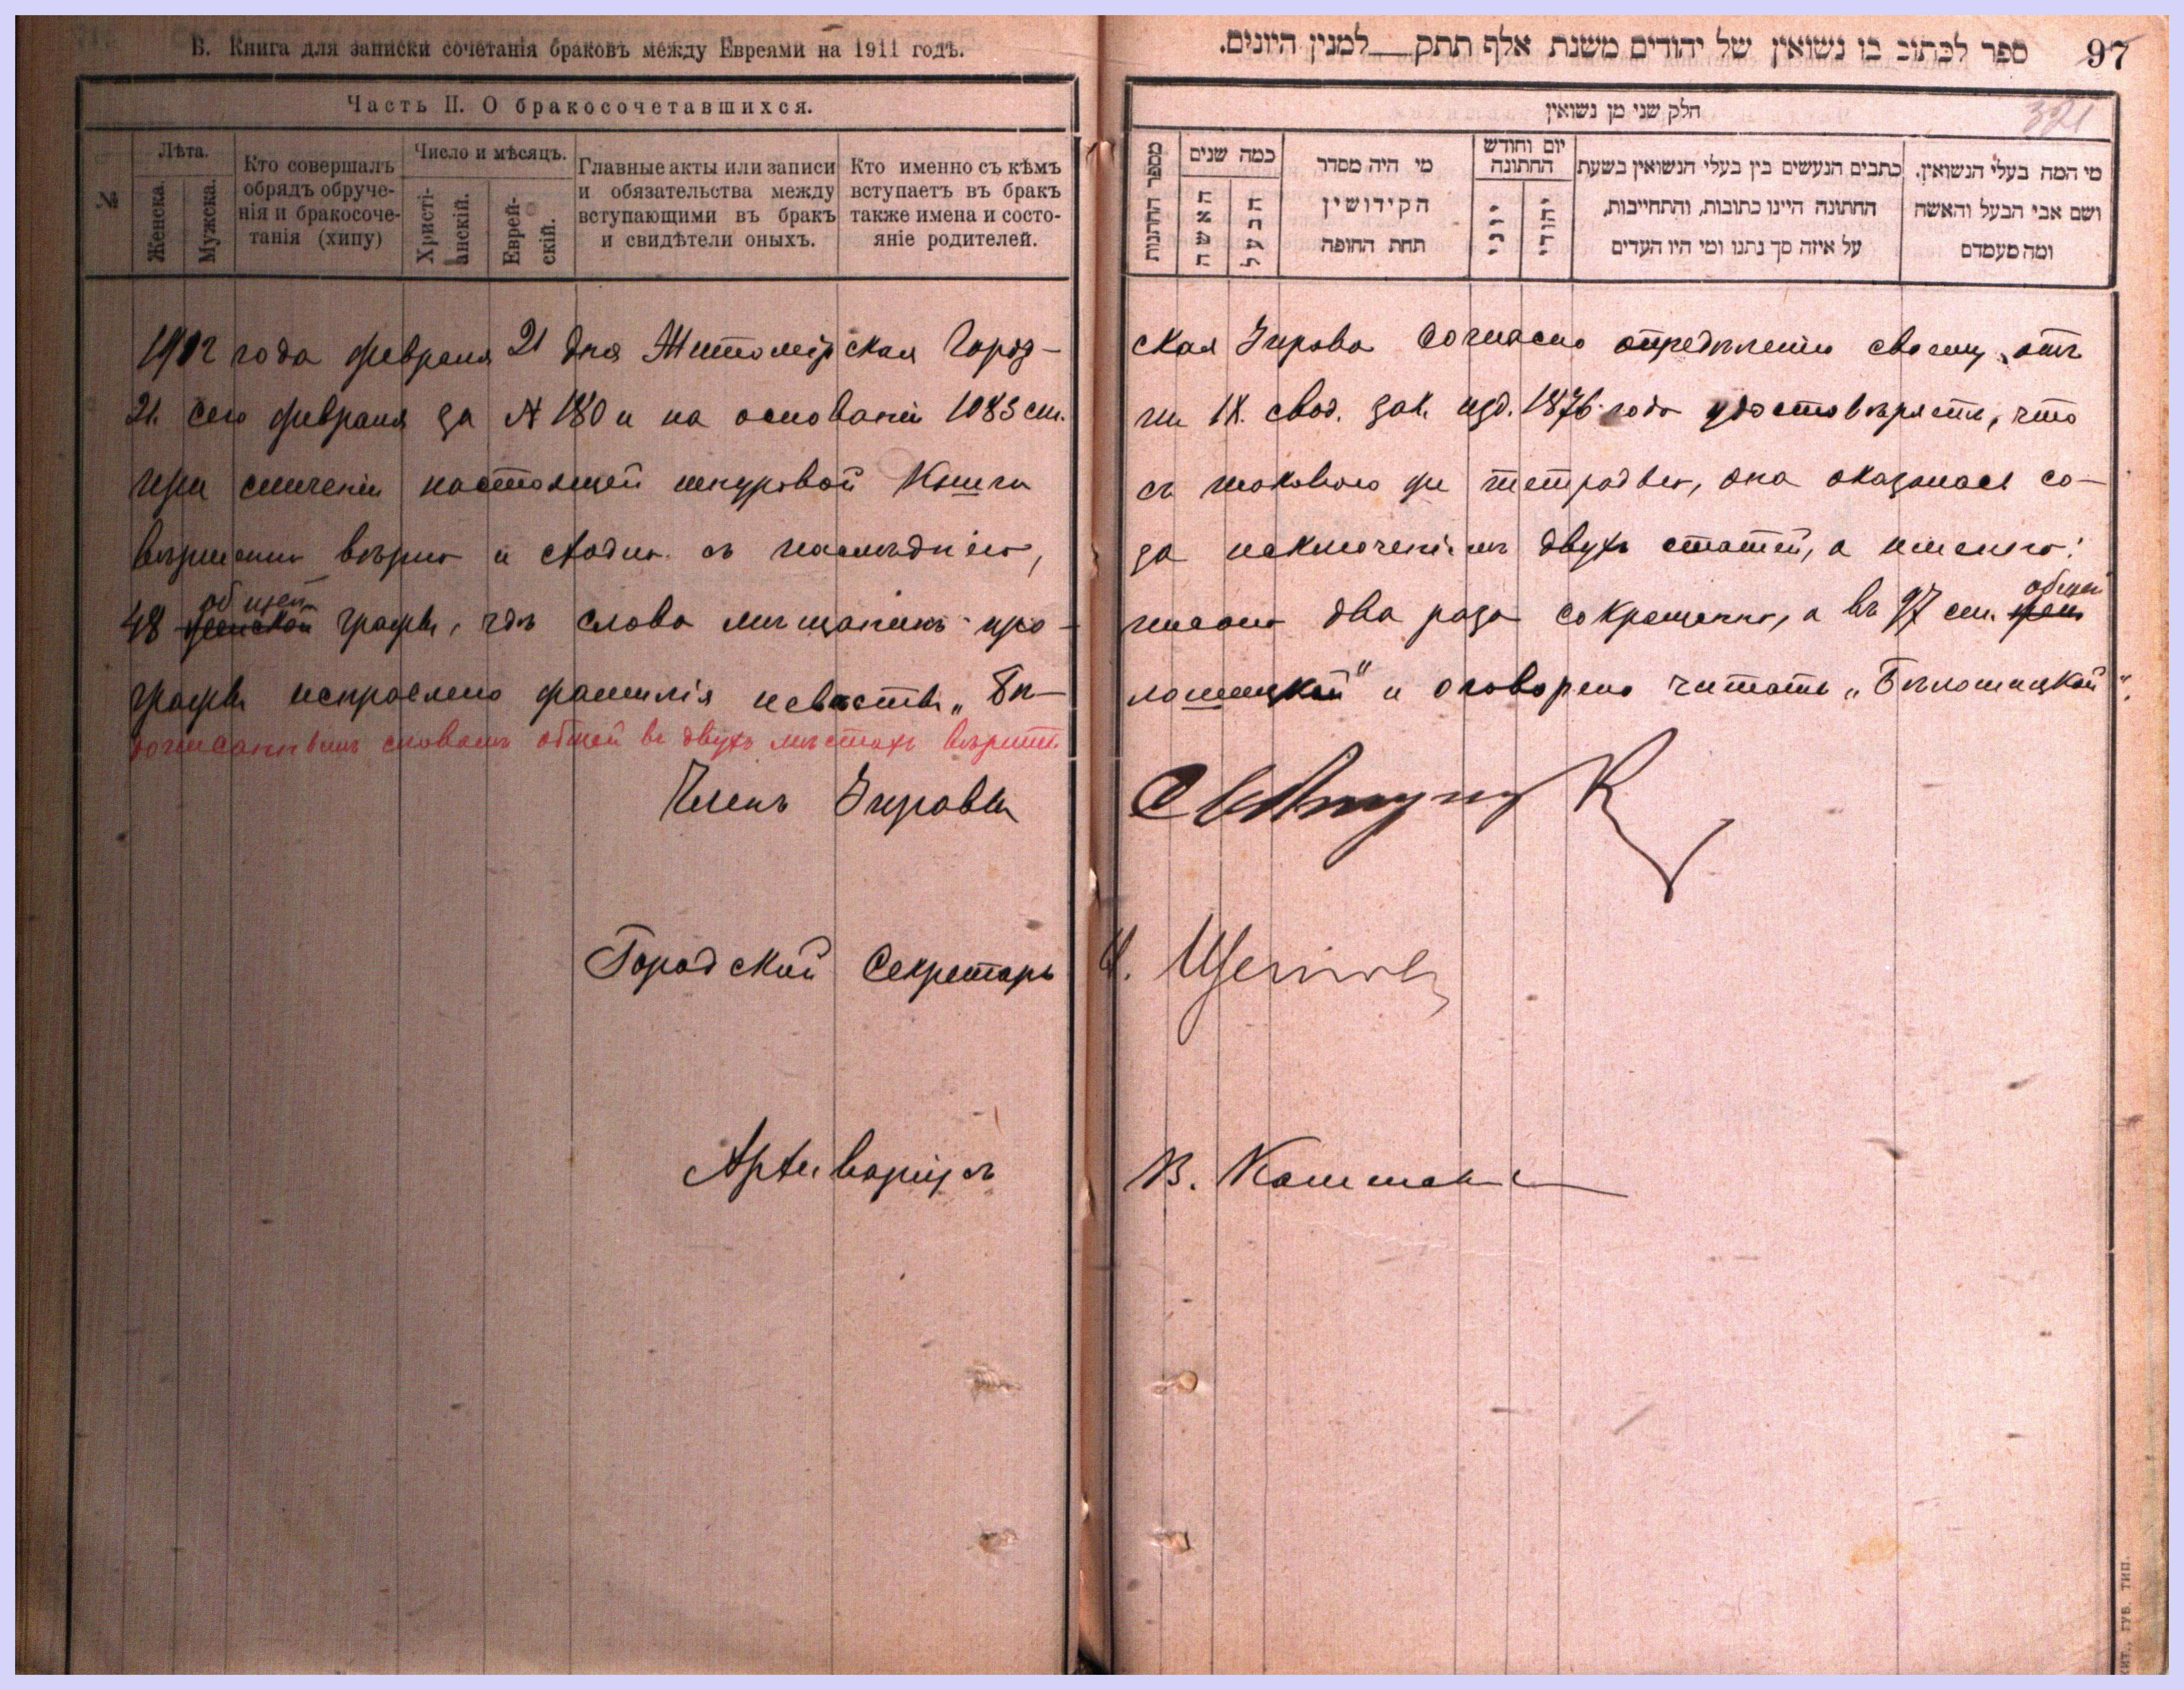 Б. Книга для записки сочетанія браковъ между Евреями на 1911 годъ.
Часть II. О бракосочетавшихся.
№
Лѣта.
Женска.
Мужска.
Кто совершалъ
обрядъ обруче-
нія и бракосоче-
танія (хипу)
Число и мѣсяцъ.
Христі-
анскій.
Еврей-
скій.
Главные акты или записи
и обязательства между
вступающими въ бракъ
и свидѣтели оныхъ.
Кто именно съ кѣмъ
вступаетъ въ бракъ
также имена и состо-
яніе родителей.
ספר לכתוב בו נשואין של יהודים משנת אלף תתק למנין היונים.
97
321
חלק שני מן נשואין
מספר החתנות
כמה שנים
האשה
הבעל
מי היה מסדר
הקידושין
תחת החופה
יום וחודש
החתונה
יוני
יהודי
כתבים הנעשים בין בעלי הנשואין בשעת
החתונה היינו כתובות, והתחייבות,
על איזה סך נתנו ומי היו העדים
מי המה בעלי הנשואין.
ושם אבי הבעל והאשה
ומה מעמדם
1912 года февраля 21 дня Житомірская Город-
ская Управа согласно опредѣленію своему отъ
21 сего февраля за № 180 и на основаніи 1083 ст.
IX. свод. зак. изд. 1876 года удостовѣряетъ, что
при сличеніи настоящей шнуровой Книги
съ таковою же тетрадью, она оказалась со-
вершенно вѣрно и сходно съ послѣднею,
за исключеніемъ двухъ статей, а именно:
общей
48 графы, гдѣ слово мѣщанинъ про-
писано два раза сокращенно, а въ 97 ст. общей
графы исправлено фамилія невѣсты „Бѣ-
лошицкой" и оговорено читать „Бѣлошицкой".
дописаннымъ словамъ общей въ двухъ мѣстахъ вѣрить
Членъ Управы
Городской Секретарь
Архиваріусъ
В.
ЖИТ., ГУБ. ТИП.